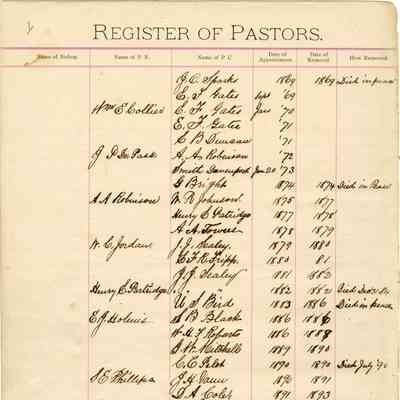 REGISTER OF PASTORS.
Name of Bishop. Name of P. E. Name of P. C. Date of Appointment. Date of Removal. How Removed.
J. C. Sparks 1869 1869 Died in peace
E. F. Gates Sept '69
Wm E Collier E. F. Gates Jan '70
E. F. Gates '71
C B Duncan '71
J. P. De Pass A. A. Robinson '72
Smith Davenport Jan 20 '73
G Bright 1874 1874 Died in Peace
A A Robinson W. R. Johnson 1875 1877
Henry E Partridge 1877 1878
A A Tower 1878 1879
W. C. Jordan J. J. Sealey 1879 1880
C. F. R. Tripp 1880 81
J. J. Sealey 1881 1882
Henry E Partridge 1882 1882 Died
U. S. Bird 1883 1886 Died in peace
E. J. Holmes S B Black 1886 1886
W. H. F. Roberts 1886 1888
J. W. Mitchell 1889 1890
C. C. 1890 1890 Died July '90
S E Phillips J. H. 1890 1891
D. A. Cole 1891 1893